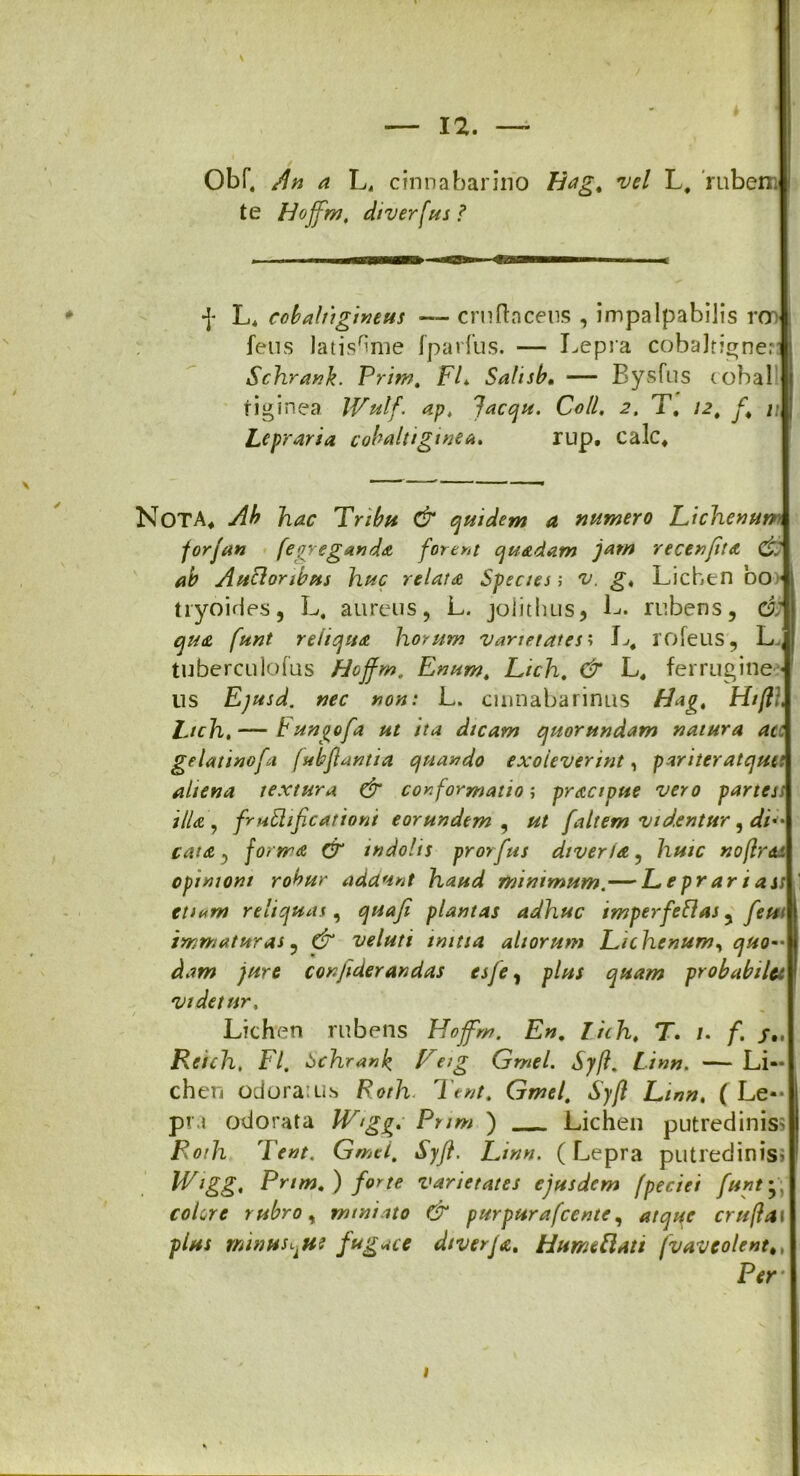 — 12. —
Obſ. An a L. cinnabarino Hag. vel L. ruben
te Hoffm. diverſus ?
† L. cobaltigineus — cruſtaceus , impalpabilis ro
ſeus latisſime ſparſus. — Lepra cobaltigne
Schrank. Prim. Fl. Salisb. — Bysſus cobal
tiginea Wulf. ap. Jacqu. Coll. 2. T. 12. f.
Lepraria cobaltiginea. rup. calc.
NOTA. Ab hac Tribu & quidem a numero Lichenum
forſan ſegregandæ forent quædam jam recenſitæ &
ab Auctoribus huc relatæ Species; v. g. Lichen bo
tryoides, L. aureus, L. jolithus, L. rubens, &
quæ ſunt reliquæ horum varietates; L. roſeus, L.
tuberculoſus Hoffm. Enum. Lich. & L. ferrugine
us Ejusd. nec non: L. cinnabarinus Hag. Hiſt.
Lich. — Fungoſa ut ita dicam quorundam natura ac
gelatinoſa ſubſtantia quando exoleverint, pariteratque
aliena textura & conformatio; præcipue vero partes
illæ, fructificationi eorundem , ut ſaltem videntur, di-
catæ, forma & indolis prorſus diverſæ, huic noſtræ
opinioni robur addunt haud minimum.— Leprarias
etiam reliquas, quaſi plantas adhuc imperfectas, ſeu
immaturas, & veluti initia aliorum Lichenum, quo-
dam jure conſiderandas esſe, plus quam probabile
videtur.
Lichen rubens Hoffm. En. Lich. T. 1. f. 5.
Reich. Fl. Schrank Veig Gmel. Syſt. Linn. — Li-
chen odoratus Roth. Tent. Gmel. Syſt Linn. ( Le-
pra odorata Wigg. Prim ) — Lichen putredinis
Roth Tent. Gmel. Syſt. Linn. ( Lepra putredinis
Wigg. Prim. ) forte varietates ejusdem ſpeciei ſunt;
colore rubro, miniato & purpuraſcente, atque cruſta
plus minusque fugace diverſæ. Humectati ſvaveolent,
Per